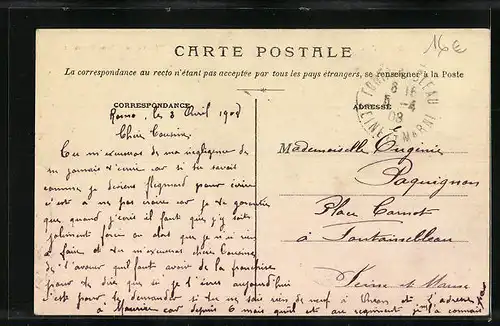 16€
CARTE POSTALE
La correspondance au recto n'étant pas acceptée par tous les pays étrangers, se renseigner à la Poste
CORRESPONDANCE
ADRESSE
le 3 Avril 1908
Chère Cousine,
Tu m'excuseras de ma négligence de
ne jamais t'écrire car si tu savais
comme je deviens flegnard pour écrire
c'est à ne pas croire car je te garantie
que quand j'écris il faut que j'y sois
joliment forcé ou alors que je n'ai rien
à faire et tu m'excuseras chère Cousine
de l'avouer faut avoir de la franchise
pour te dire que si je t'écris aujourd'hui
c'est pour te demander si tu ne sais rien de neuf à et l'adresse
à Maurice car depuis 6 mois qu'il est au régiment je n'a
Mademoiselle Eugénie
Paquignon
Place Carnot
à Fontainebleau
Seine et Marne
FONTAINEBLEAU
8 15
5 -4
08
SEINE ET MARNE